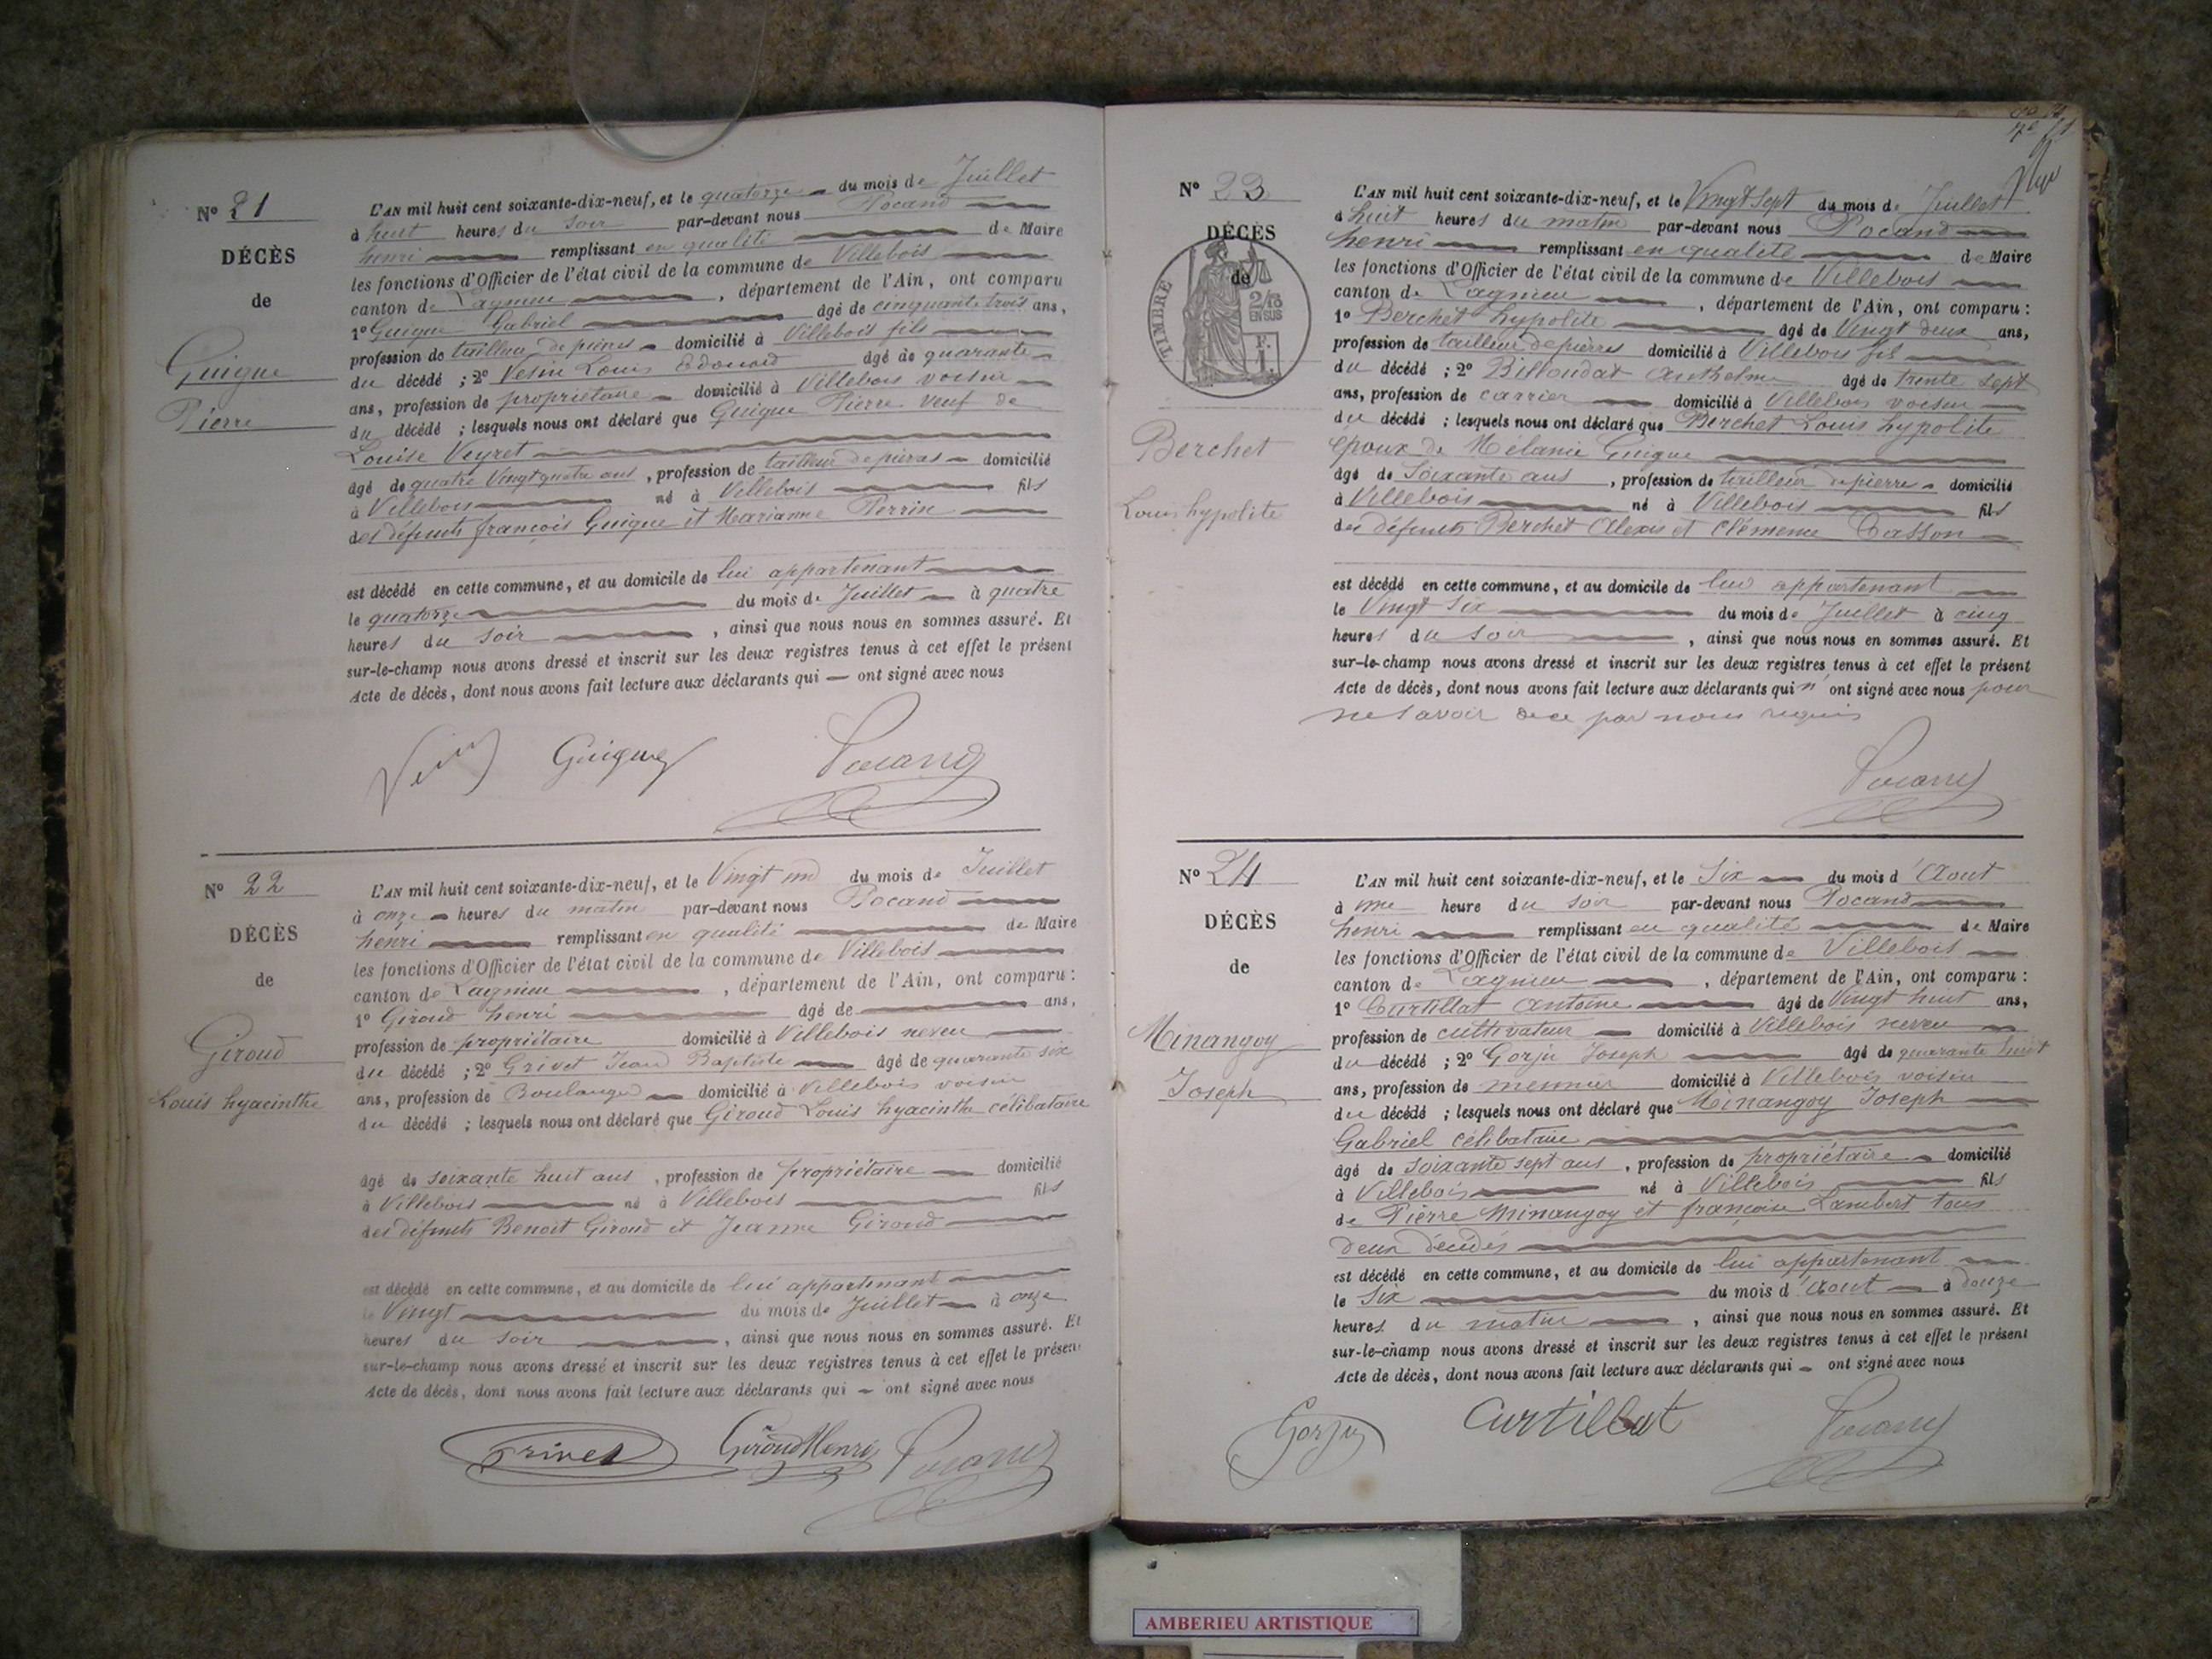 Nº 21
DÉCÈS
de
Guigue
Pierre
L'AN mil huit cent soixante-dix-neuf, et le quatorze du mois de Juillet
à huit heures du soir par-devant nous Pocand
henri remplissant en qualité de Maire
les fonctions d'Officier de l'état civil de la commune de Villebois
canton de Lagnieu, département de l'Ain, ont comparu
1º Guigue Gabriel âgé de cinquante trois ans,
profession de tailleur de pierres domicilié à Villebois fils
du décédé ; 2º Vesin Louis Edouard âgé de quarante
ans, profession de propriétaire domicilié à Villebois voisin
du décédé ; lesquels nous ont déclaré que Guigue Pierre veuf de
Louise Veyret
âgé de quatre Vingt quatre ans, profession de tailleur de pierres domicilié
à Villebois né à Villebois fils
des défunts françois Guigue et Marianne Perrin
est décédé en cette commune, et au domicile de lui appartenant
le quatorze du mois de Juillet à quatre
heures du soir, ainsi que nous nous en sommes assuré. Et
sur-le-champ nous avons dressé et inscrit sur les deux registres tenus à cet effet le présent
Acte de décès, dont nous avons fait lecture aux déclarants qui — ont signé avec nous
Guigue Pocand
Nº 22
DÉCÈS
de
Giroud
Louis hyacinthe
L'AN mil huit cent soixante-dix-neuf, et le Vingt un du mois de Juillet
à onze heures du matin par-devant nous Pocand
henri remplissant en qualité de Maire
les fonctions d'Officier de l'état civil de la commune de Villebois
canton de Lagnieu, département de l'Ain, ont comparu :
1º Giroud henri âgé de ans,
profession de propriétaire domicilié à Villebois neveu
du décédé ; 2º Grivet Jean Baptiste âgé de quarante six
ans, profession de Boulanger domicilié à Villebois voisin
du décédé ; lesquels nous ont déclaré que Giroud Louis hyacinthe célibataire
âgé de soixante huit ans, profession de propriétaire domicilié
à Villebois né à Villebois fils
des défunts Benoit Giroud et Jeanne Giroud
est décédé en cette commune, et au domicile de lui appartenant
le Vingt du mois de Juillet à onze
heures du soir, ainsi que nous nous en sommes assuré. Et
sur-le-champ nous avons dressé et inscrit sur les deux registres tenus à cet effet le présent
Acte de décès, dont nous avons fait lecture aux déclarants qui — ont signé avec nous
Grivet Giroud Henri Pocand
Nº 23
DÉCÈS
de
TIMBRE
2/10 EN SUS
F. 1.
Berchet
Louis hypolite
L'AN mil huit cent soixante-dix-neuf, et le Vingt sept du mois de Juillet
à huit heures du matin par-devant nous Pocand
henri remplissant en qualité de Maire
les fonctions d'Officier de l'état civil de la commune de Villebois
canton de Lagnieu, département de l'Ain, ont comparu :
1º Berchet hypolite âgé de Vingt deux ans,
profession de tailleur de pierres domicilié à Villebois fils
du décédé ; 2º Billoudat Anthelme âgé de trente sept
ans, profession de carrier domicilié à Villebois voisin
du décédé ; lesquels nous ont déclaré que Berchet Louis hypolite
époux de Mélanie Guigue
âgé de Soixante ans, profession de tailleur de pierre domicilié
à Villebois né à Villebois fils
des défunts Berchet Alexis et Clémence Casson
est décédé en cette commune, et au domicile de lui appartenant
le Vingt six du mois de Juillet à cinq
heures du soir, ainsi que nous nous en sommes assuré. Et
sur-le-champ nous avons dressé et inscrit sur les deux registres tenus à cet effet le présent
Acte de décès, dont nous avons fait lecture aux déclarants qui n'ont signé avec nous pour
ne savoir de ce par nous requis
Pocand
Nº 24
DÉCÈS
de
Minangoy
Joseph
L'AN mil huit cent soixante-dix-neuf, et le Six du mois d'Aout
à une heure du soir par-devant nous Pocand
henri remplissant en qualité de Maire
les fonctions d'Officier de l'état civil de la commune de Villebois
canton de Lagnieu, département de l'Ain, ont comparu :
1º Curtillat Antoine âgé de Vingt huit ans,
profession de cultivateur domicilié à Villebois neveu
du décédé ; 2º Gorju Joseph âgé de quarante huit
ans, profession de meunier domicilié à Villebois voisin
du décédé ; lesquels nous ont déclaré que Minangoy Joseph
Gabriel célibataire
âgé de soixante sept ans, profession de propriétaire domicilié
à Villebois né à Villebois fils
de Pierre Minangoy et françoise Lambert tous
deux décédés
est décédé en cette commune, et au domicile de lui appartenant
le Six du mois d'Aout à douze
heures du matin, ainsi que nous nous en sommes assuré. Et
sur-le-champ nous avons dressé et inscrit sur les deux registres tenus à cet effet le présent
Acte de décès, dont nous avons fait lecture aux déclarants qui — ont signé avec nous
Gorju Curtillat Pocand
AMBERIEU ARTISTIQUE